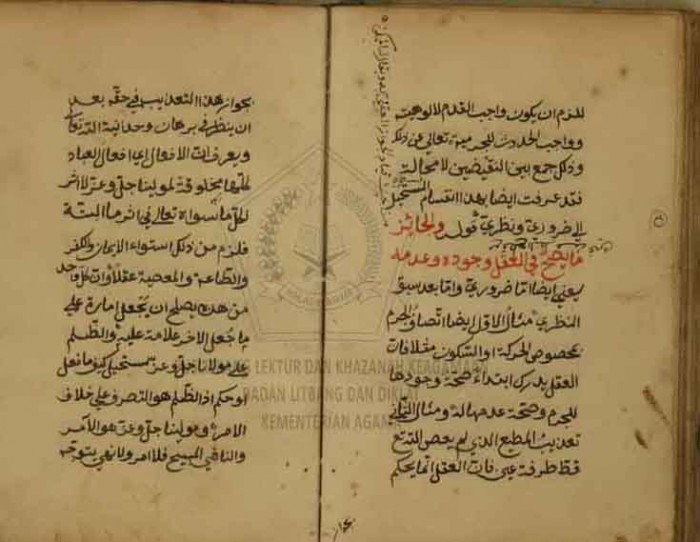 للزم ان يكون واجب القدم لالوهيته
وواجب الحدوث للجرمية تعالى عن ذلك
وذلك جمع بين النقيضين لا محالة
فقد عرفت ايضا بهذا انقسام المستحيل
الى ضروري ونظري قوله والجائز
ما يصح في العقل وجوده وعدمه
يعني ايضا اما ضروري واما بعد سبق
النظري مثال الاول ايضا اتصاف الجرم
بخصوص الحركة او السكون مثلا فان
العقل يدرك ابتداء صحة وجودها
للجرم وصحة عدمها له ومثال الثاني
تعذيب المطيع الذي لم يعص الله تع
قط طرفة عين فان العقل انما يحكم
بجواز
بجواز هذا التعذيب في حقه بعد
ان ينظر في برهان وحدانية الله تعالى
ويعرف ان الافعال اي افعال العباد
كلها مخلوقة لمولينا جل وعز لا اثر
لكل ما سواه تعالى في اثر ما البتة
فلزم من ذلك استواء الايمان والكفر
والطاعة والمعصية عقلا وان كل واحد
من هذه يصلح ان يجعل امارة على
ما جعل الاخر علامة عليه والظلم
على مولانا جل وعز مستحيل كيف ما فعل
او حكم اذ الظلم هو التصرف على خلاف
الامر ومولينا جل وعز هو الآمر
والناهي المبيح فلا امر ولا نهي يتوجه
LEKTUR DAN KHAZANAH KEAGAMAAN
BADAN LITBANG DAN DIKLAT
KEMENTERIAN AGAMA